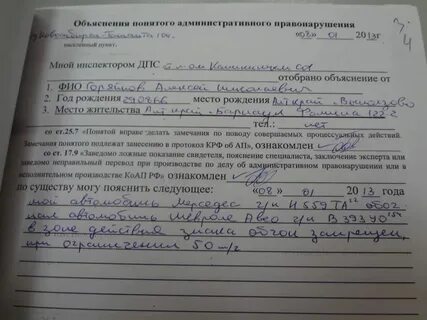 Объяснения понятого административного правонарушения
«08» 01 2013г
3.
4
населенный пункт.
Мной инспектором ДПС
отобрано объяснение от
1. ФИО Алексей Николаевич
2. Год рождения место рождения Алт край
3. Место жительства Алт край Барнаул
тел.: нет
со ст.25.7 «Понятой вправе делать замечания по поводу совершаемых процессуальных действий.
Замечания понятого подлежат занесению в протокол КРФ об АП», ознакомлен
со ст. 17.9 «Заведомо ложные показание свидетеля, пояснение специалиста, заключение эксперта или
заведомо неправильный перевод при производстве по делу об административном правонарушении или в
исполнительном производстве КоАП РФ» ознакомлен
по существу могу пояснить следующее: «08» 01 2013 года
мой автомобиль Мерседес г/н Н 559 ТА обог
нал автомобиль Шевроле Авео г/н В 393 УО
в зоне действия знака обгон запрещен,
при ограничении 50